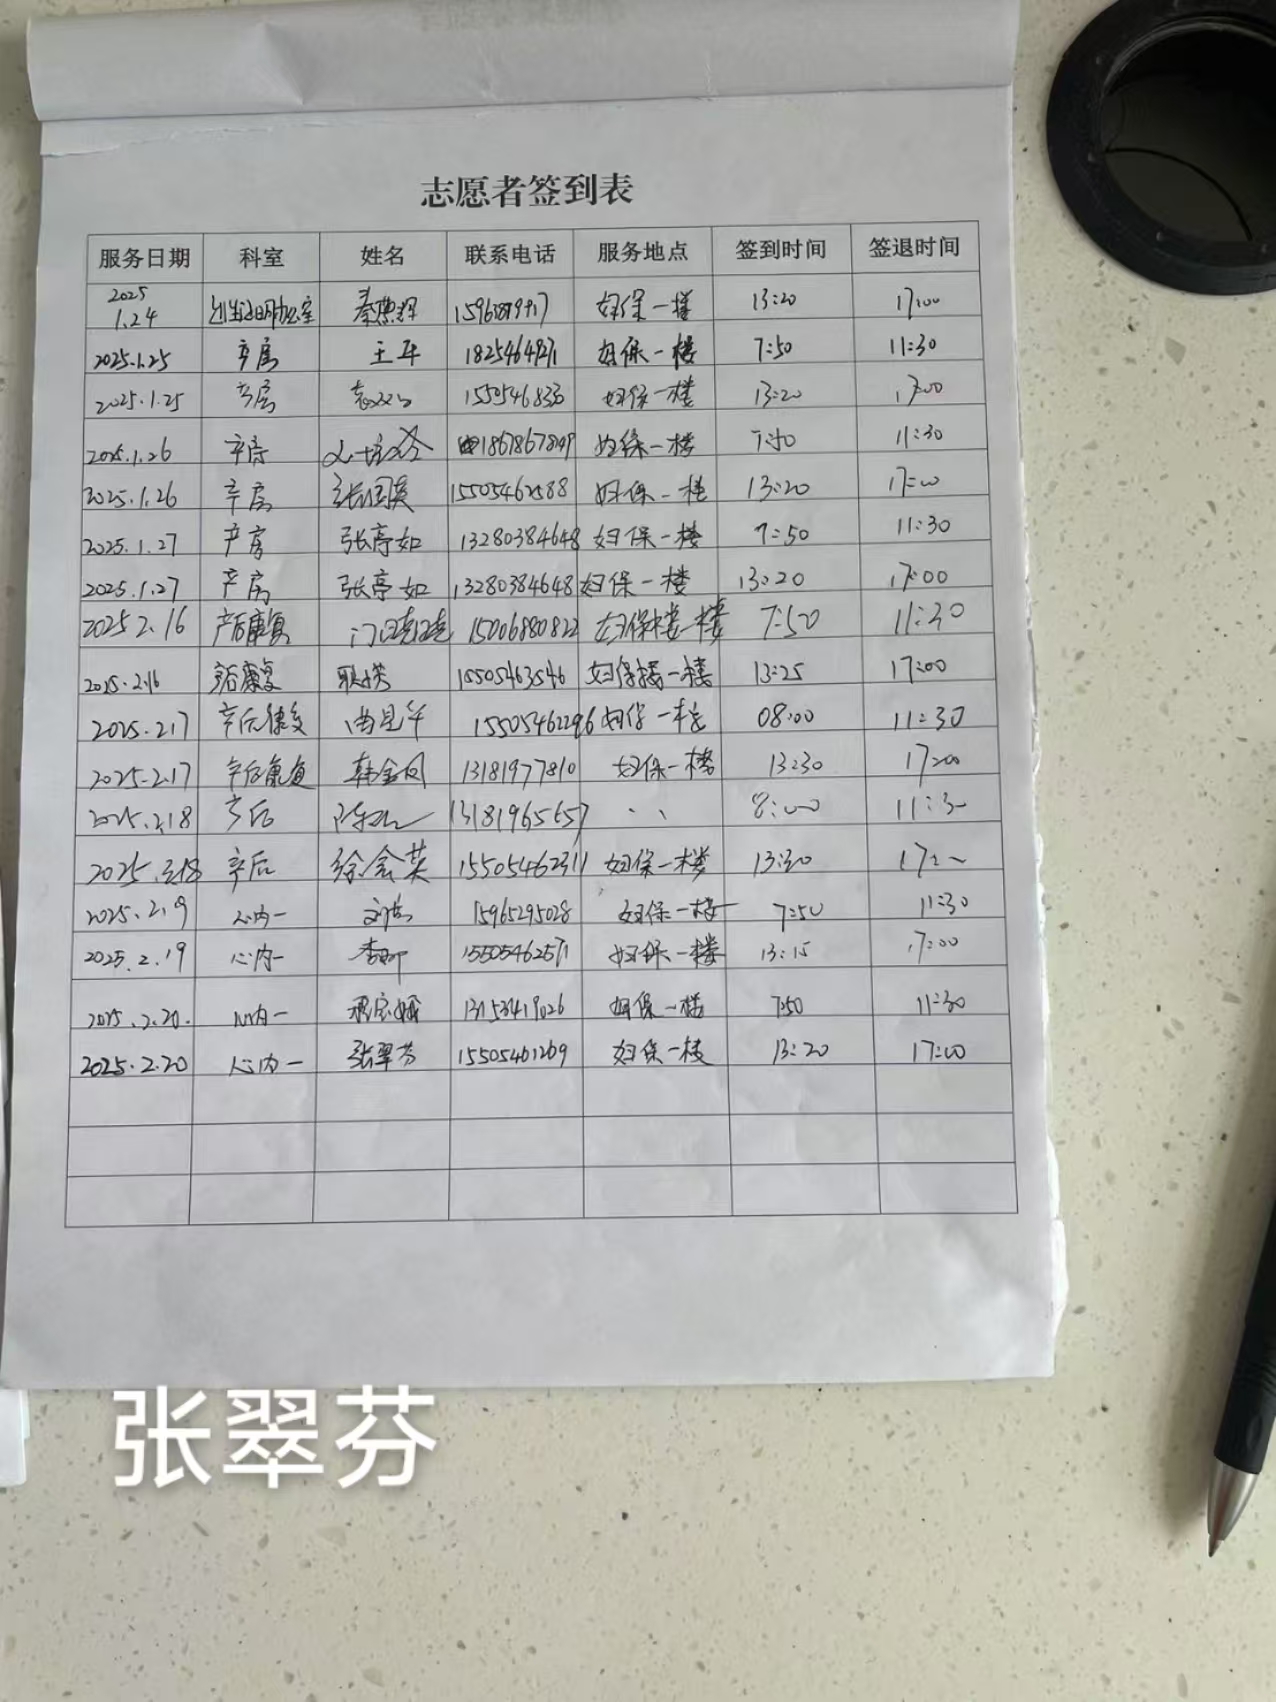 志愿者签到表
服务日期 科室 姓名 联系电话 服务地点 签到时间 签退时间
2025 1.24 妇保一楼 13:20 17:00
2025.1.25 产房 王 妇保一楼 7:50 11:30
2025.1.25 产房 妇保一楼 13:20 17:00
2025.1.26 产房 妇保一楼 7:50 11:30
2025.1.26 产房 15505462588 妇保一楼 13:20 17:00
2025.1.27 产房 张亭如 13280384648 妇保一楼 7:50 11:30
2025.1.27 产房 张亭如 13280384648 妇保一楼 13:20 17:00
2025 2.16 产后康复 15006880822 妇保楼一楼 7:50 11:30
2025.2.16 产后康复 15505463546 妇保楼一楼 13:25 17:00
2025.2.17 产后康复 15505462296 妇保一楼 08:00 11:30
2025.2.17 产后康复 韩金凤 13181977810 妇保一楼 13:30 17:00
2025.2.18 产后 13181965657 、、 8:00 11:30
2025. 产后 徐会英 15505462311 妇保一楼 13:30
2025.2.19 心内一 15965295028 妇保一楼 7:50 11:30
2025.2.19 心内一 15505462571 妇保一楼 13:15 17:00
2025.2.20. 心内一 13153419026 妇保一楼 7:50 11:30
2025.2.20 心内一 张翠芬 15505461269 妇保一楼 13:20 17:00
张翠芬